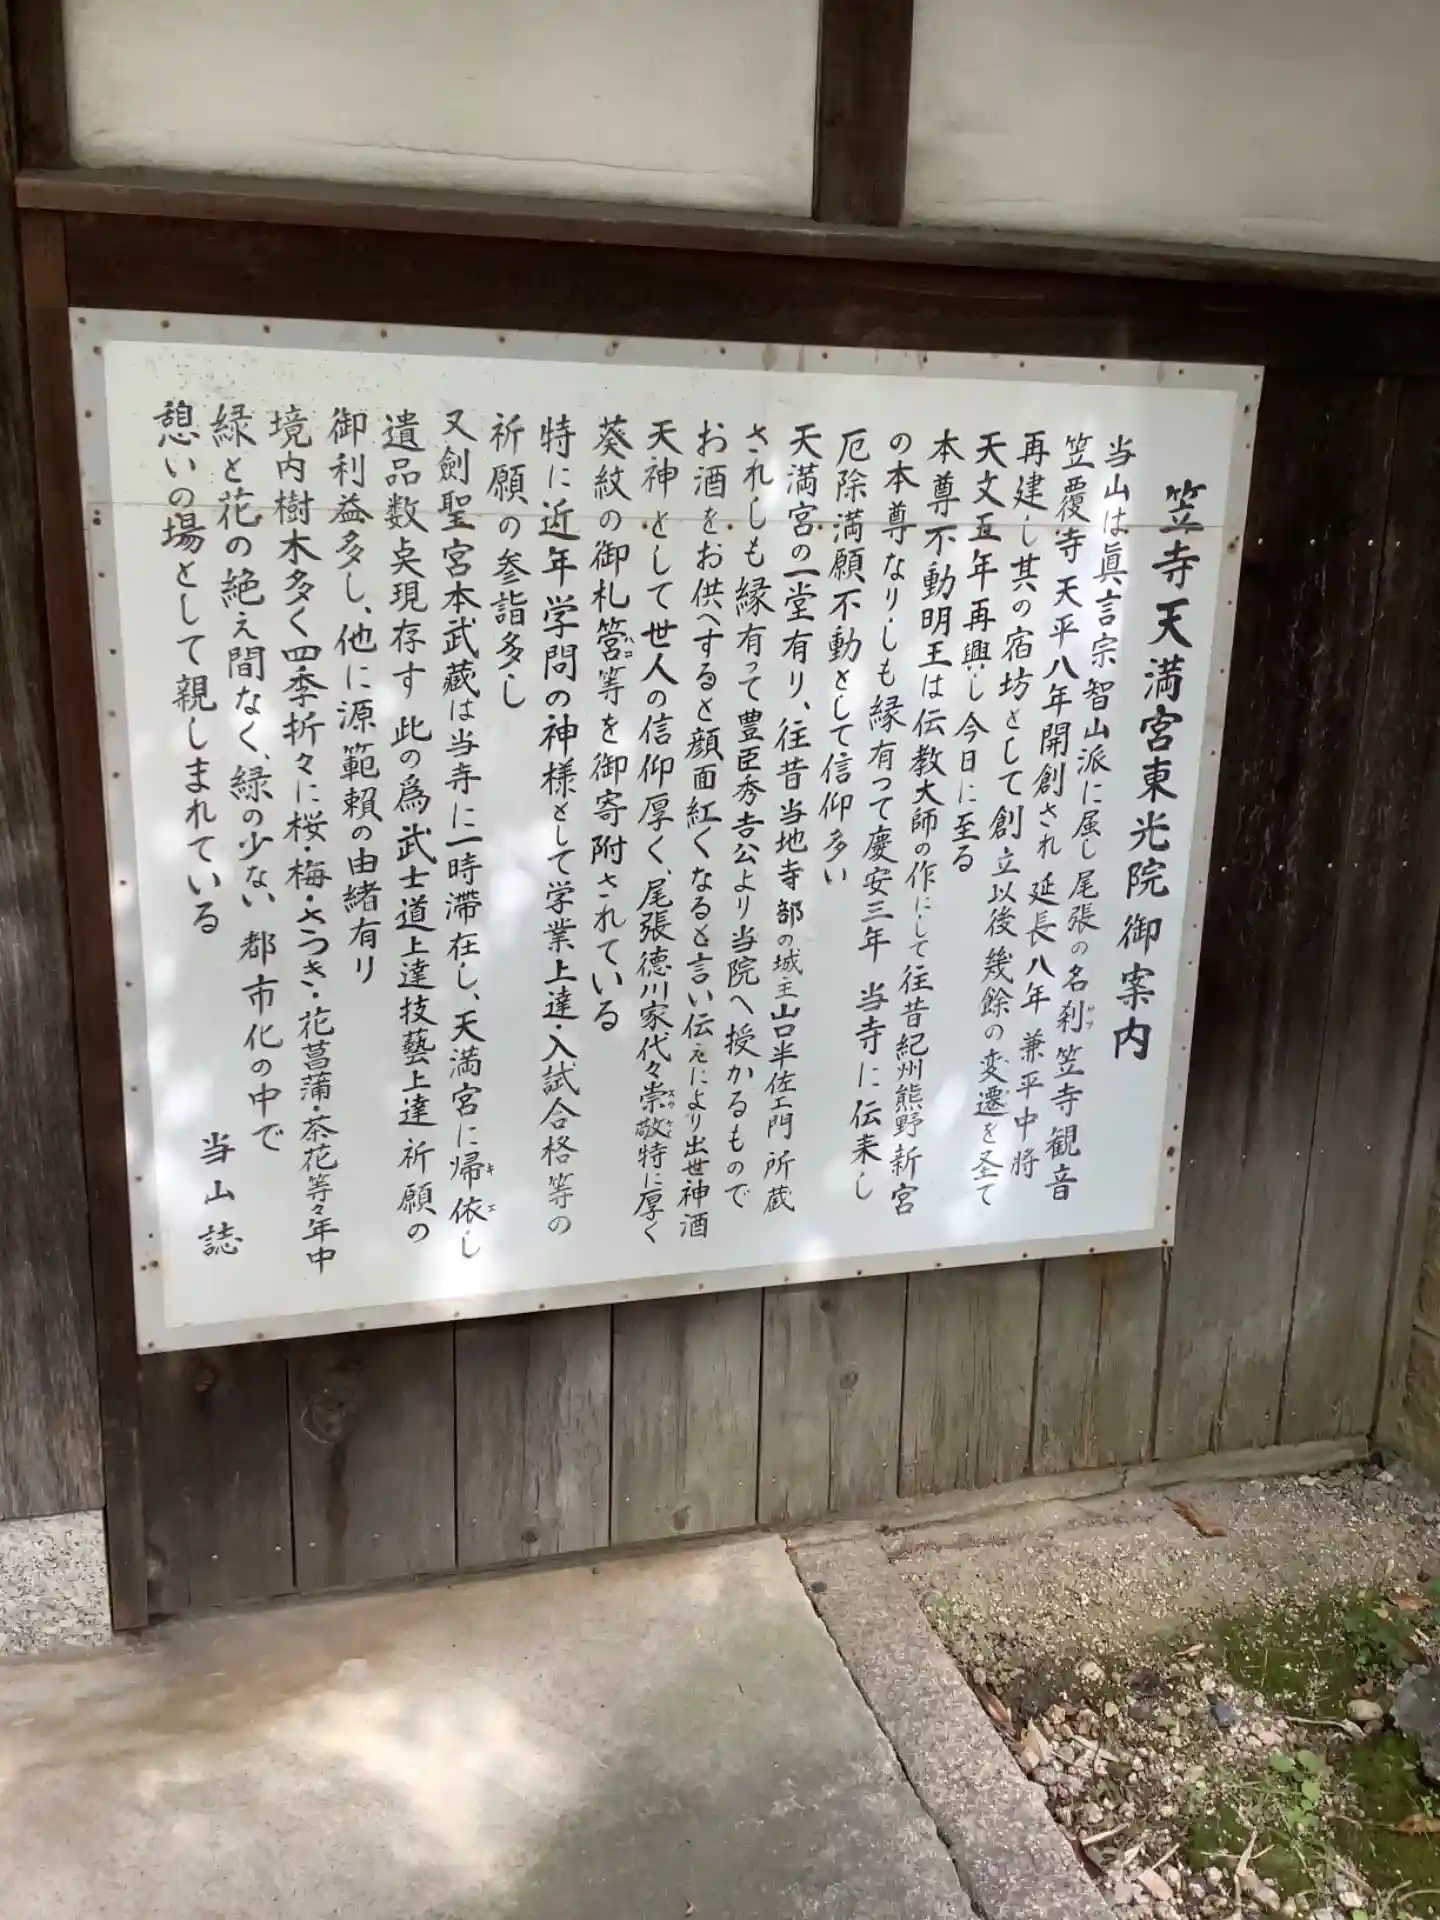 笠寺天満宮東光院御案内
当山は眞言宗智山派に属し尾張の名刹笠寺観音
笠覆寺 天平八年開創され 延長八年 兼平中將
再建し其の宿坊として創立以後幾餘の変遷を圣て
天文五年再興し今日に至る
本尊不動明王は伝教大師の作にして往昔紀州熊野新宮
の本尊なりしも縁有って慶安三年 当寺に伝来し
厄除満願不動として信仰多い
天満宮の一堂有り、往昔当地寺部の城主山口半佐エ門所蔵
されしも縁有って豊臣秀吉公より当院へ授かるもので
お酒をお供へすると顔面紅くなると言い伝えにより出世神酒
天神として世人の信仰厚く、尾張徳川家代々崇敬特に厚く
葵紋の御札筥等を御寄附されている
特に近年学問の神様として学業上達・入試合格等の
祈願の参詣多し
又劍聖宮本武蔵は当寺に一時滞在し、天満宮に帰依し
遺品数点現存す此の爲武士道上達技藝上達祈願の
御利益多し、他に源範頼の由緒有り
境内樹木多く四季折々に桜・梅・さつき・花菖蒲・茶花等々年中
緑と花の絶え間なく、緑の少ない 都市化の中で
憩いの場として親しまれている
当山誌